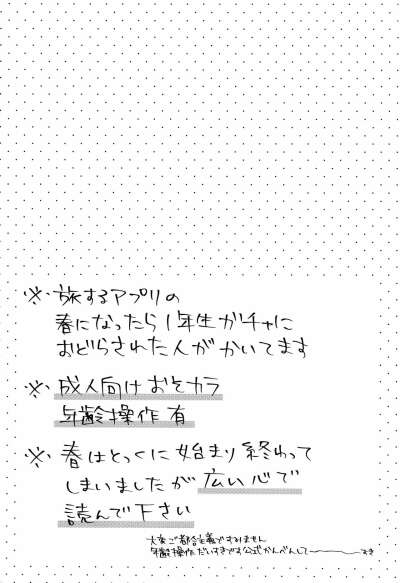 ※ 旅するアプリの
春になったら1年生ガチャに
おどらされた人がかいてます
※ 成人向けおそカラ
年齢操作有
※ 春はとっくに始まり終わって
しまいましたが広い心で
読んで下さい
大変ご都合主義ですみません
年齢操作だいすきです公式かんべんして